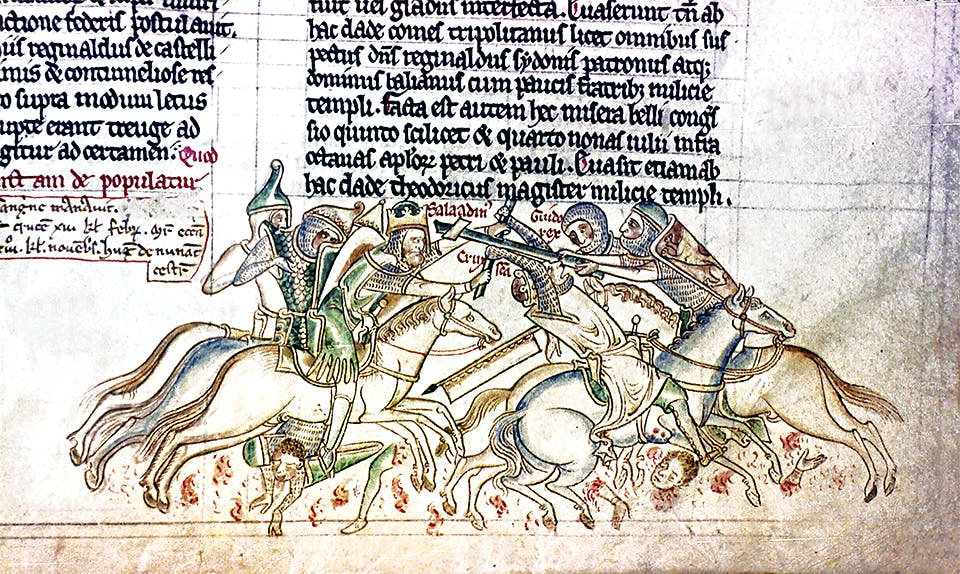 ctione federis postulauit.
uis reginaldus de castelli
imis & contumeliose res
o supra modum letus
upte erant treuge ad
gitur ad certamen. Quod
de populatur
mandauit.
uel gladiis interfecta. Euaserunt tn ab
hac clade comes tripolitanus licet omnibus sus
pectus dns reginaldus sydonis patronus atq;
dominus balianus cum paucis fratribz milicie
templi. Facta est autem hec misera belli congs
sio quinto scilicet & quarto nonas iulii infra
octauas aplorꝝ petri & pauli. Euasit etiam ab
hac clade theodoricus magister milicie templi.
Saladin'
Guido
rex
Crux sca